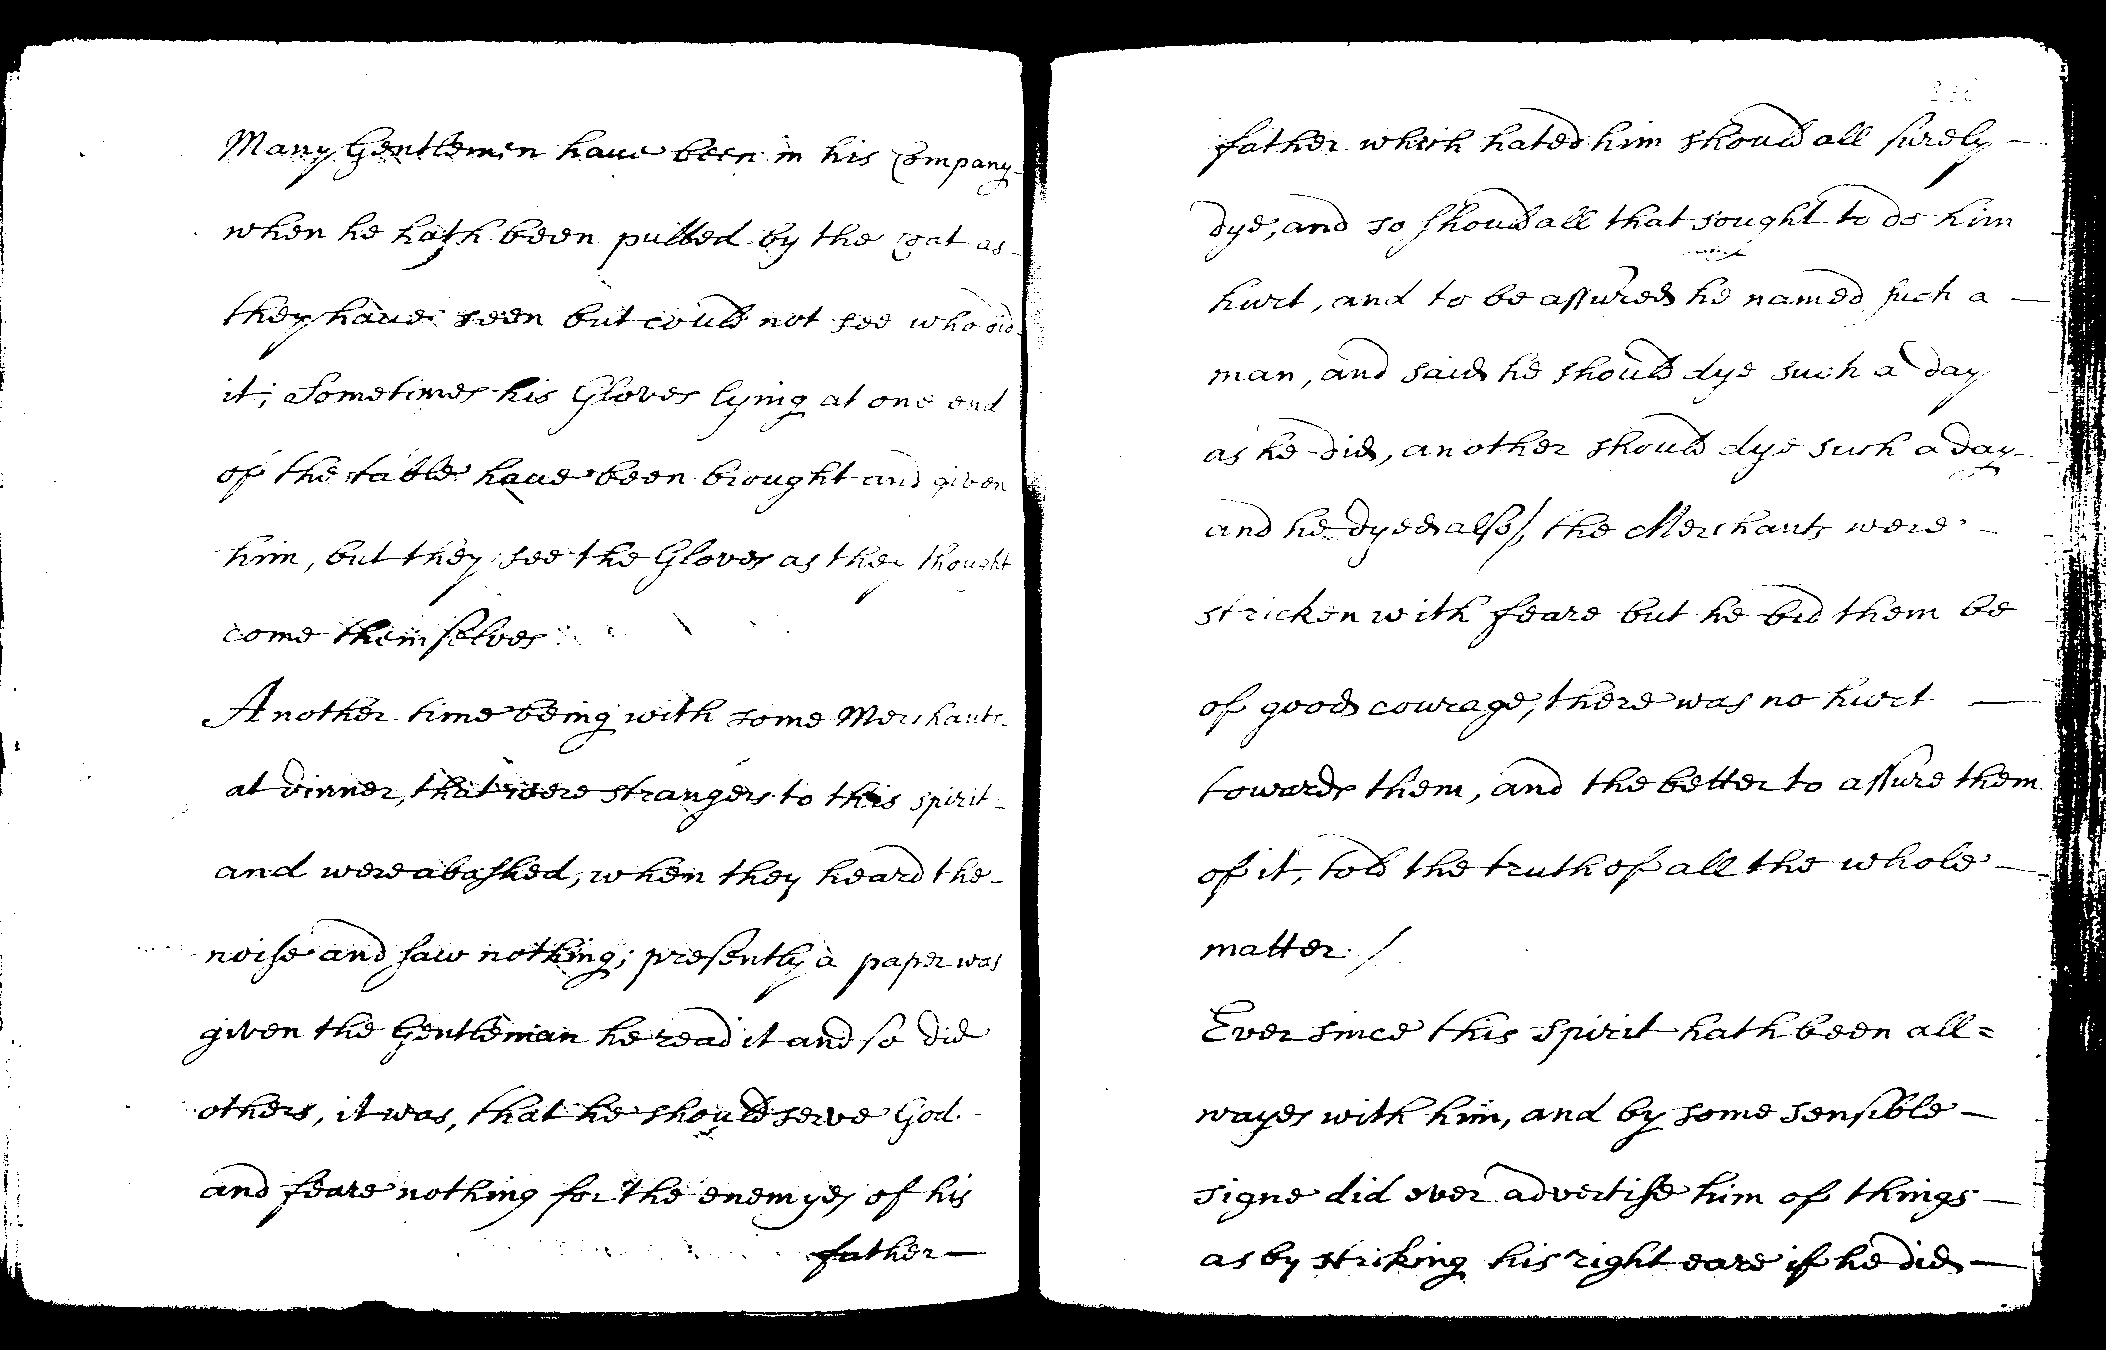 Many Gentlemen haue been in his Company
when he hath been pulled by the Coat as
they haue seen but could not see who did
it; Sometimes his Gloves lying at one end
of the table haue been brought and given
him, but they see the Gloves as they thought
come themselves
Another time being with some Merchants
at dinner, that were strangers to this spirit
and were abashed, when they heard the
noise and saw nothing; presently a paper was
given the Gentleman he read it and so did
others, it was, that he should serve God
and feare nothing for the enemyes of his
father —
father which hated him should all surely —
dye, and so should all that sought to do him
hurt, and to be assured he named such a —
man, and said he should dye such a day
as he did, another should dye such a day
and he dyed also/, the Merchants were —
stricken with feare but he bid them be
of good courage, there was no hurt —
towards them, and the better to assure them
of it, told the truth of all the whole —
matter. /
Ever since this spirit hath been all=
wayes with him, and by some sensible —
signe did ever advertise him of things —
as by striking his right eare if he did —